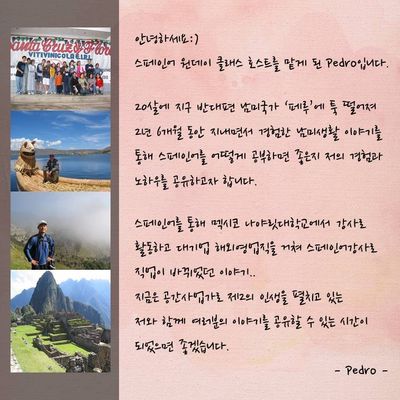 Santa Cruz de Flores
VITIVINICOLA E.I.R.L
안녕하세요:)
스페인어 원데이 클래스 호스트를 맡게 된 Pedro입니다.
20살에 지구 반대편 남미국가 '페루'에 툭 떨어져
2년 6개월 동안 지내면서 경험한 남미생활 이야기를
통해 스페인어를 어떻게 공부하면 좋은지 저의 경험과
노하우를 공유하고자 합니다.
스페인어를 통해 멕시코 나야릿대학교에서 강사로
활동하고 대기업 해외영업직을 거쳐 스페인어강사로
직업이 바뀌었던 이야기..
지금은 공간사업가로 제2의 인생을 펼치고 있는
저와 함께 여러분의 이야기를 공유할 수 있는 시간이
되었으면 좋겠습니다.
- Pedro -